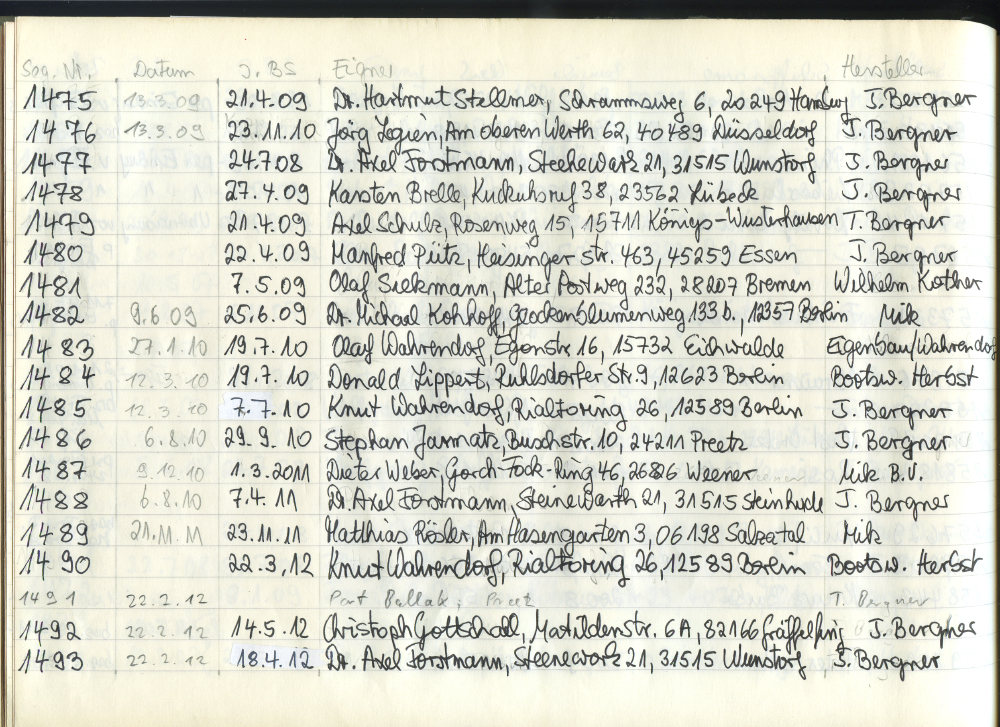 Seg. Nr. Datum J. BS Eigner Hersteller
1475 13.3.09 21.4.09 Dr. Hartmut Stellmer, Schrammsweg 6, 20249 Hamburg J. Bergner
1476 13.3.09 23.11.10 Jörg Logien, Am oberen Werth 62, 40489 Düsseldorf J. Bergner
1477 24.7.08 Dr. Axel Forstmann, 21, 31515 Wunstorf J. Bergner
1478 27.4.09 Karsten Brelle, Kuckuksruf 38, 23562 Lübeck J. Bergner
1479 21.4.09 Axel Schulz, Rosenweg 15, 15711 Königs-Wusterhausen, J. Bergner
1480 22.4.09 Manfred Pütz, Heisinger Str. 463, 45259 Essen J. Bergner
1481 7.5.09 Olaf Siekmann, Alter Postweg 232, 28207 Bremen Wilhelm Kother
1482 9.6.09 25.6.09 Dr. Michael Kohhoff, Glockenblumenweg 133b., 12357 Berlin Mik
1483 27.1.10 19.7.10 Olaf Wahrendorf, Egonstr 16, 15732 Eichwalde Eigenbau/Wahrendorf
1484 12.3.10 19.7.10 Donald Lippert, Ruhlsdorfer Str. 9, 12623 Berlin Bootsw. Herbst
1485 12.3.10 7.7.10 Knut Wahrendorf, Rialtoring 26, 12589 Berlin J. Bergner
1486 6.8.10 29.9.10 Stephan Jarmatz, Buschstr. 10, 24211 Preetz J. Bergner
1487 9.12.10 1.3.2011 Dieter Weber, Gorch-Fock-Ring 46, 26826 Weener Mik B.V.
1488 6.8.10 7.4.11 Dr. Axel Forstmann, Steinewarth 21, 31515 Steinhude J. Bergner
1489 21.11.11 23.11.11 Matthias Rösler, Am Hasengarten 3, 06198 Salzatal Mik
1490 22.3.12 Knut Wahrendorf, Rialtoring 26, 12589 Berlin Bootsw. Herbst
1491 22.2.12 Preetz J. Bergner
1492 22.2.12 14.5.12 Christoph Gottschall, Matildenstr. 6A, 82166 Gräffelfing J. Bergner
1493 22.2.12 18.4.12 Dr. Axel Forstmann, 21, 31515 Wunstorf J. Bergner